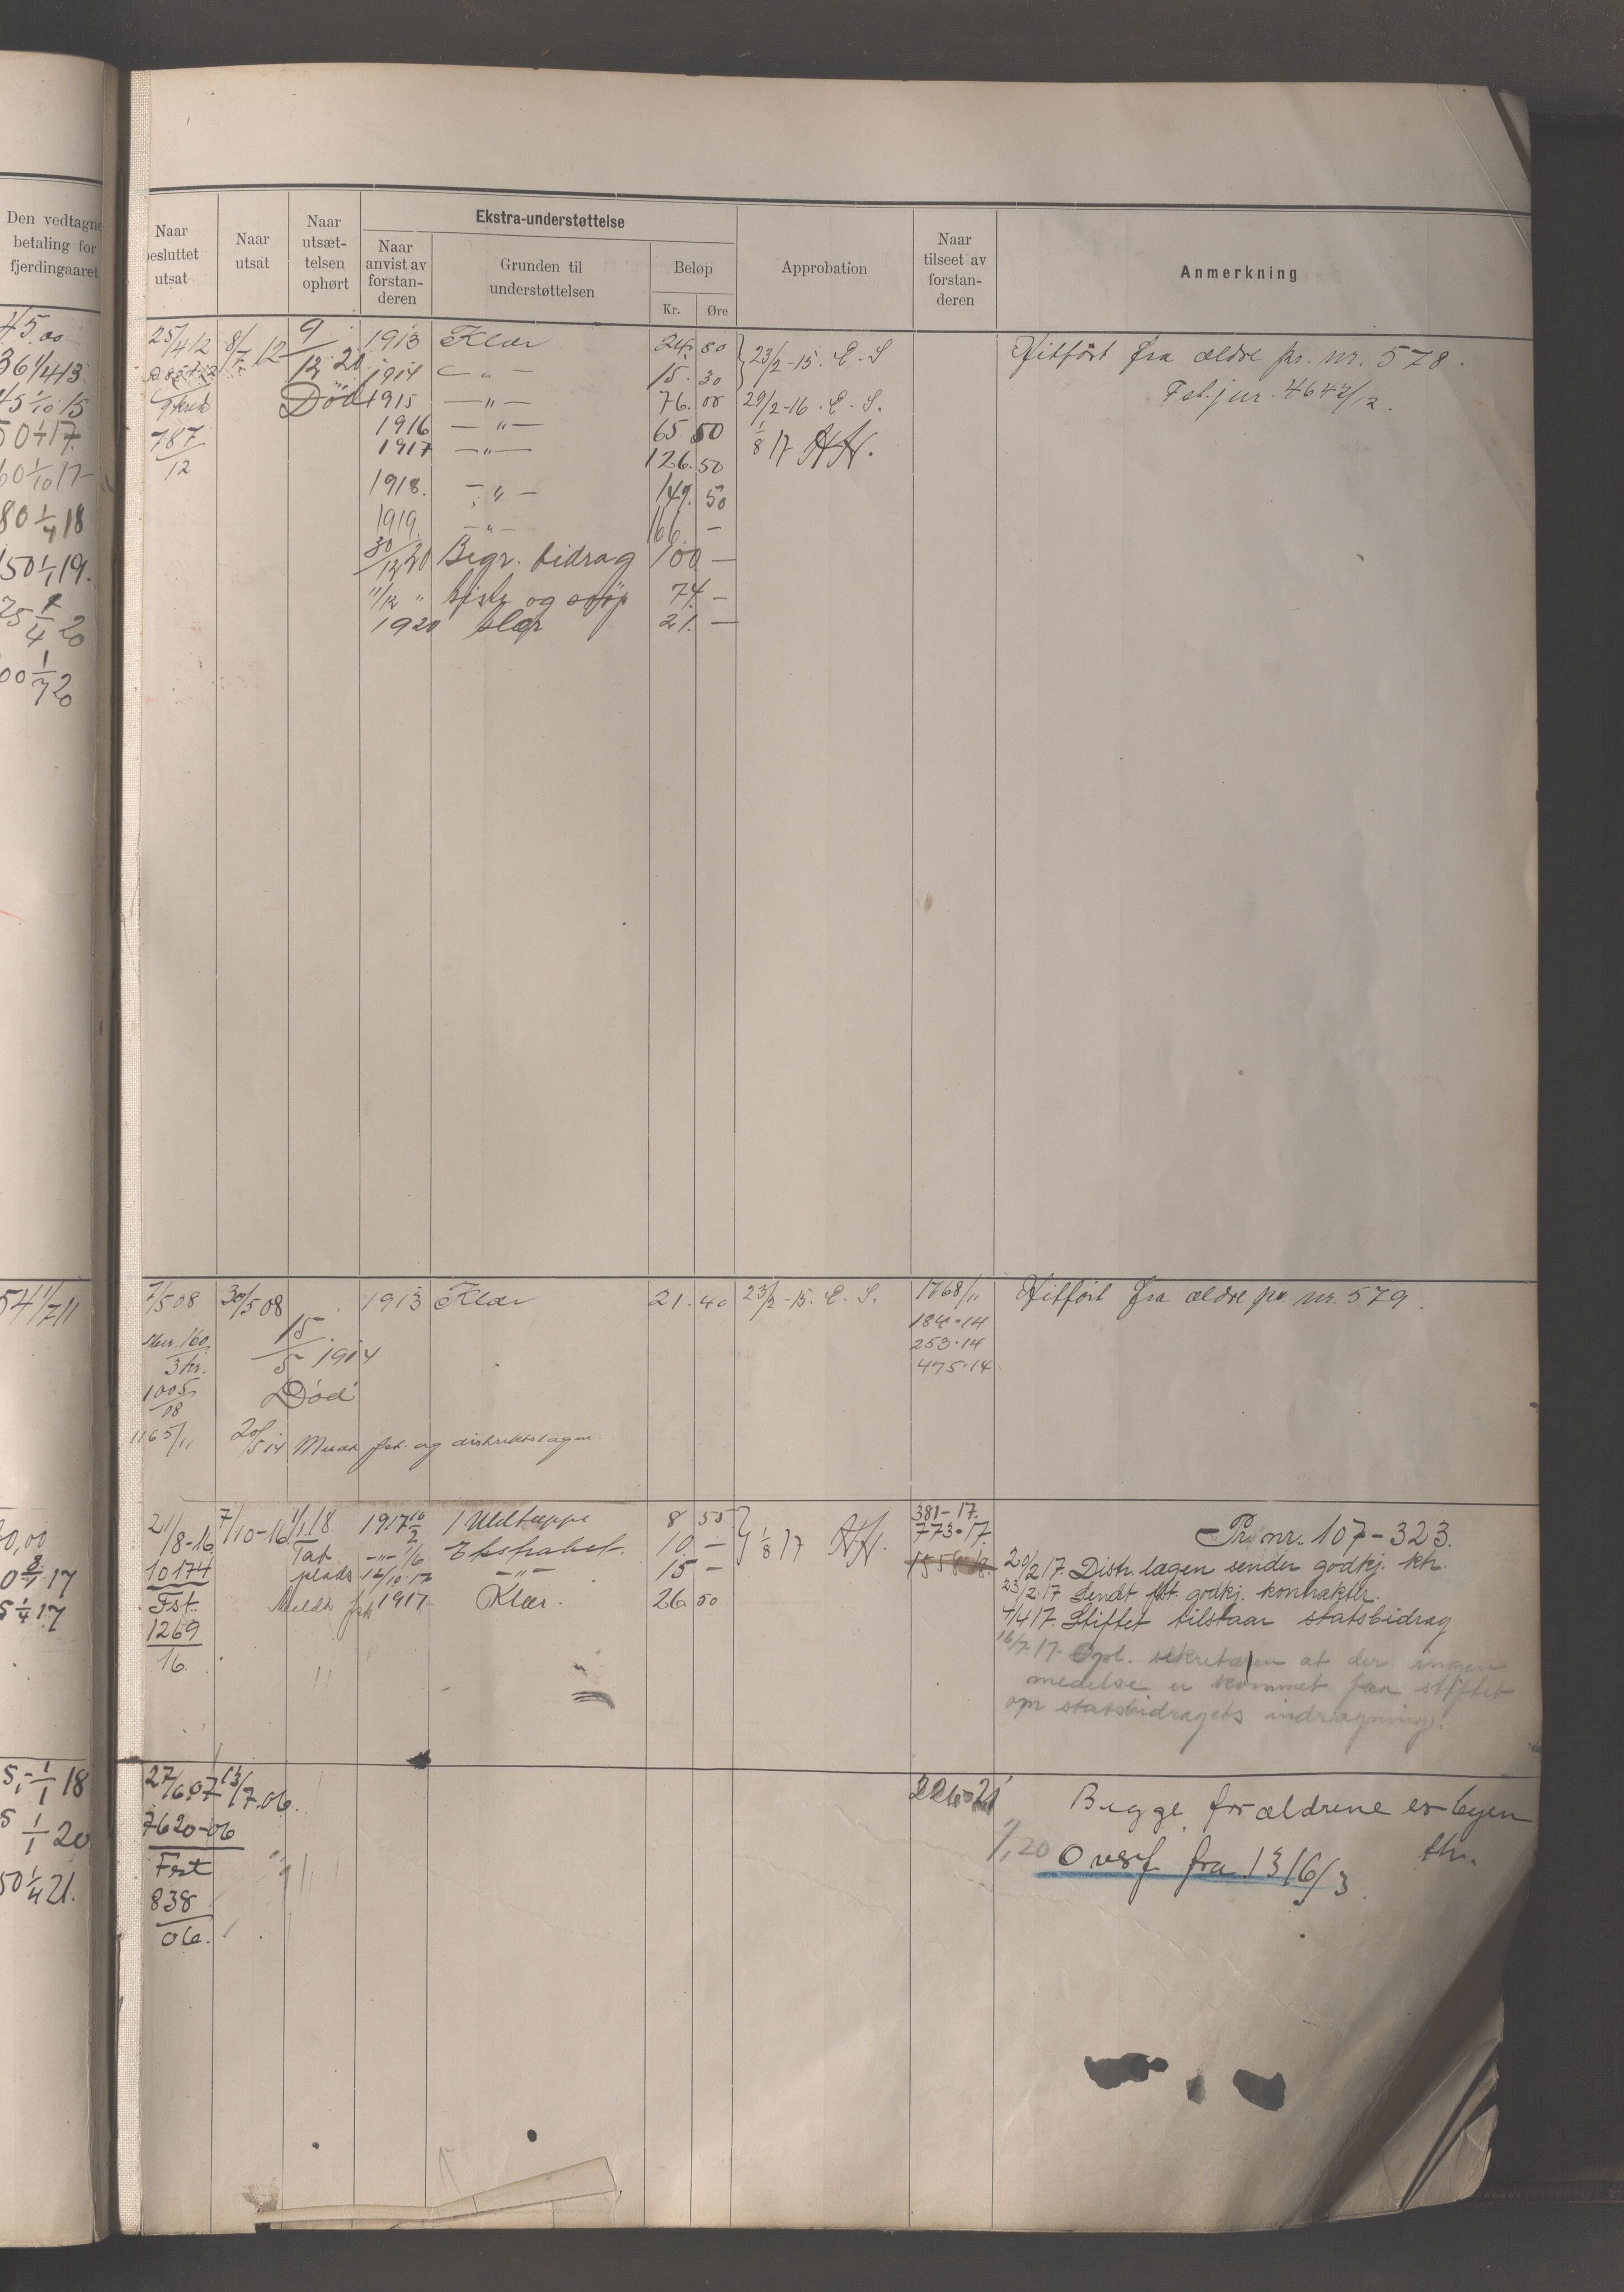 Den vedtagne
betaling for
fjerdingaaret
Naar
besluttet
utsat
Naar
utsat
Naar
utsæt-
telsen
ophørt
Ekstra-understøttelse
Naar
anvist av
forstan-
deren
Grunden til
understøttelsen
Beløp
Kr.
Øre
Approbation
Naar
tilseet av
forstan-
deren
Anmerkning
45.00
36 1/4 13
45 1/10 15
50 1/1 17.
60 1/10 17
80 1/4 18
150 1/1 19.
75 1/4 20
00 1/7 20
25/4 12 8/7 12 9/12 20 1913 Klær 24. 80 23/2-15. E. S Hitført fra ældre pr. nr. 578.
1914 — „ — 15. 30 Fst. jur. 464 2/12.
Død 1915 — „ — 76. 00 29/2-16. E. S.
787/12 1916 — „ — 65 50 1/8 17 AH.
1917 — „ — 126. 50
1918. — „ — 149. 50
1919. — „ — 166. —
30/12 20 Begr. bidrag 100 —
11/12 „ kiste og svøp 74. —
1920 klær 21. —
54 1/7 11
7/5 08 30/5 08 1913 Klær 21. 40 23/2-15. E. S. 1768/11 Hitført fra ældre pr. nr. 579.
15/5 1914 184-14
3 kr. 253-14
1005/08 Død 475-14
1165/11 20/5 14 Meddt fst. og distriktslægen.
0,00
17
5 1/4 17
21/8-16 7/10-16 1/1 18 1917 16/2 1 Uldteppe 8 55 1/8 17 AH. 381-17. Pr. nr. 107-323.
10174 Tat — „ — 1/6 Ekstrabet. 10. — 773-17. 20/2 17. Distr. lægen sender godkj. ktr.
Fst. plads 12/10 17 — „ — 15 — 1558-18. 23/2 17 Sendt fst. godkj. kontrakter.
1269/16 Meldt fst. 1917 Klær. 26 50 4/4 17. Stiftet tilstaar statsbidrag
16/7 17. Opl. sekretæren at der ingen
medelse er kommet fra stiftet
om statsbidragets indragning.
5,- 1/1 18
5 1/1 20
50 1/4 21.
27/6 07 13/7.06. 226-21 Begge forældrene er byen
7620-06 th.
Fst 1/1 20 Overf. fra 1316/3.
838
06.